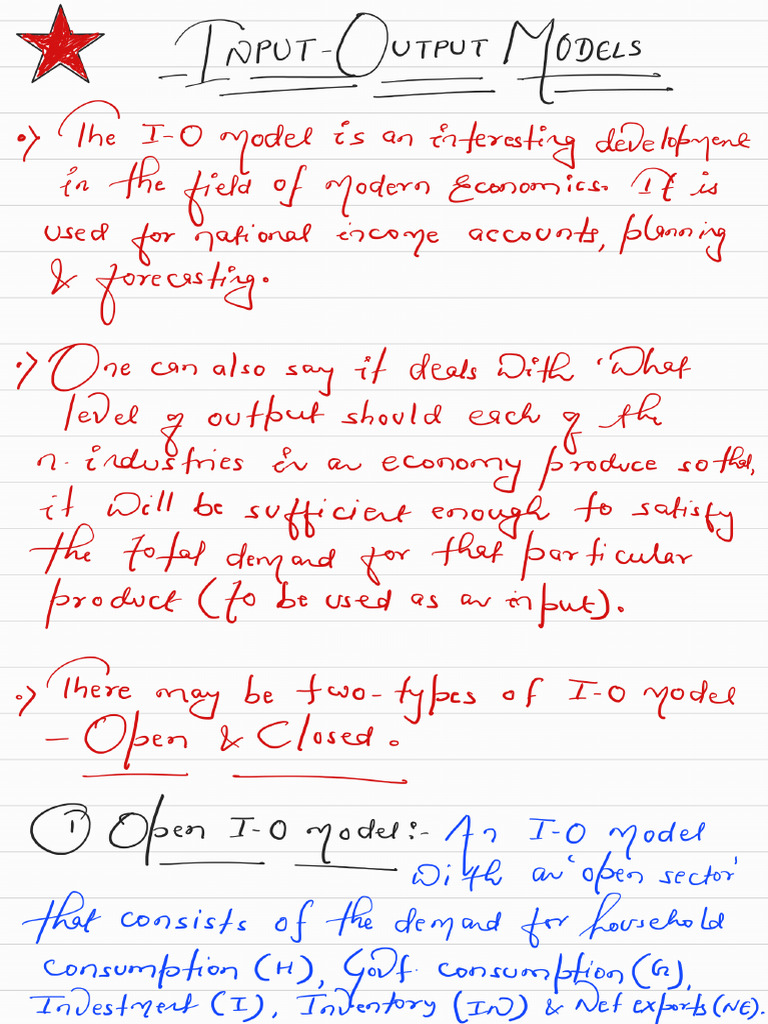 INPUT-OUTPUT MODELS
•) The I-O model is an interesting development
in the field of modern Economics. It is
used for national income accounts, planning
& forecasting.
•) One can also say it deals with 'What
level of output should each of the
n-industries in an economy produce so that,
it will be sufficient enough to satisfy
the total demand for that particular
product (to be used as an input).
•) There may be two-types of I-O model
- Open & Closed.
① Open I-O model:- An I-O model
with an 'open sector'
that consists of the demand for household
consumption (H), Govt. consumption (G),
Investment (I), Inventory (IN) & Net exports (NE).